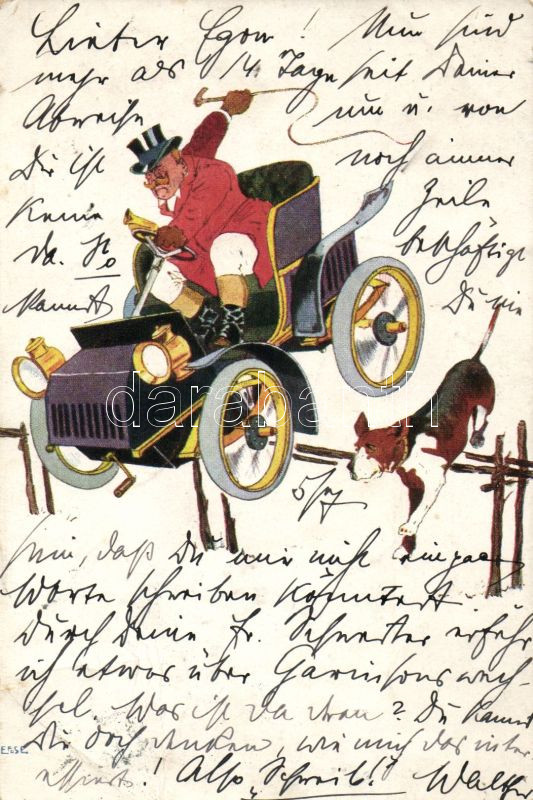 Lieber Egon! Nun sind
mehr als 14 Tage seit Deiner
Abreise um u. von
Dir ist noch immer
keine Zeile
da. So beschäftigt
kannst Du nie
5/7
sein, daß Du mir nicht ein paar
Worte schreiben könntest.
Durch Deine Fr. Schwester erfahr
ich etwas über Garnisonswech-
sel Was ist da dran? Du kannst
Dir doch denken, wie mich das inter-
essiert! Also „Schreib!" Walther
darabanth